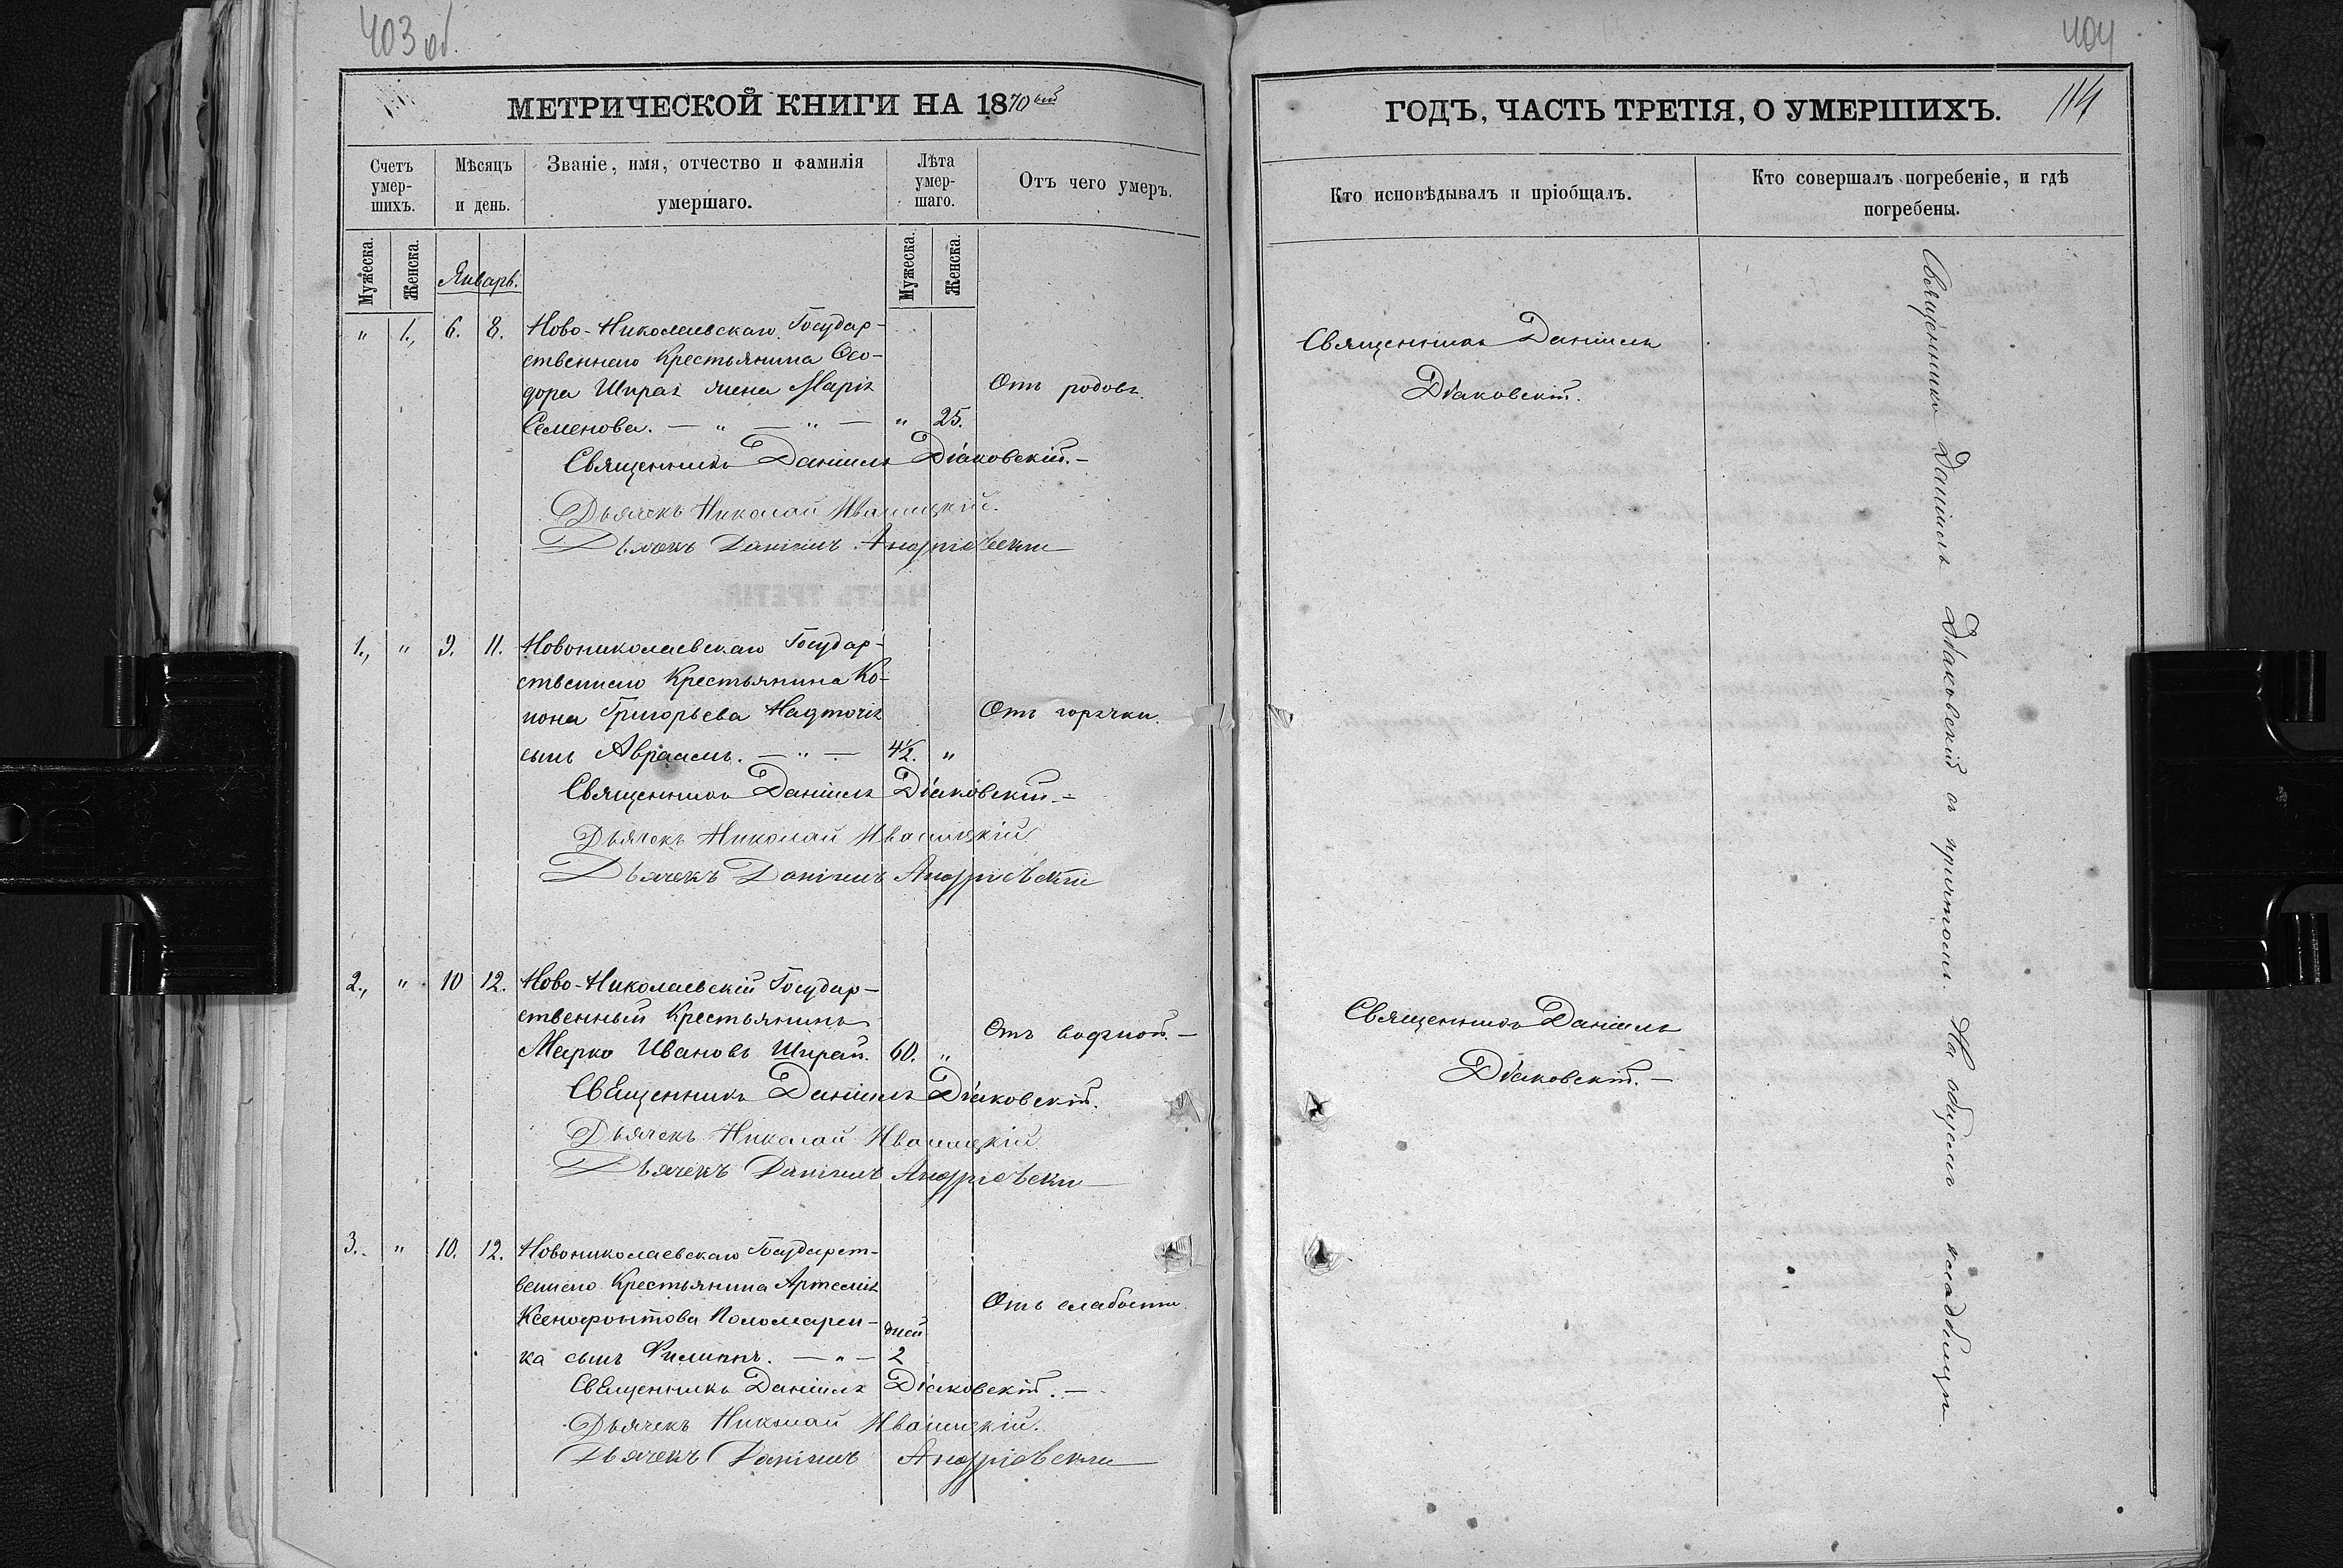 403 об.
МЕТРИЧЕСКОЙ КНИГИ НА 1870ый
Счетъ умер-шихъ.
Мѣсяцъ и день.
Званіе, имя, отчество и фамилія умершаго.
Лѣта умер-шаго.
Отъ чего умеръ.
Мужеска.
Женска.
Январь.
Мужеска.
Женска.
" 1., 6. 8. Ново-Николаевскаго Государ-
ственнаго Крестьянина Ѳео-
дора Шпрая жена Марія
Отъ родовъ.
Семенова. — " — " — " 25.
Священникъ Даніилъ Діаковскій. —
Дьячекъ Николай Ивашицкій.
Дьячекъ Даніилъ Андріевскій
1., " 9. 11. Новониколаевскаго Государ-
ственнаго Крестьянина Ко-
нона Григорьева Надточія
Отъ горячки.
сынъ Авраамъ. — " — 4½. "
Священникъ Даніилъ Діаковскій. —
Дьячекъ Николай Ивашицкій
Дьячекъ Даніилъ Андріевскій
2., " 10 12. Ново-Николаевскій Государ-
ственный Крестьянинъ
Отъ водяной. —
Марко Ивановъ Шпрай. 60. "
Священникъ Даніилъ Діаковскій.
Дьячекъ Николай Ивашицкій
Дьячекъ Даніилъ Андріевскій
3. " 10. 12. Новониколаевскаго Государст-
веннаго Крестьянина Артемія
Отъ слабости.
Ксенофонтова Поломарен-
дней
ка сынъ Филиппъ. — " — 2
Священникъ Даніилъ Діаковскій. —
Дьячекъ Николай Ивашицкій.
Дьячекъ Даніилъ Андріевскій
404
114
ГОДЪ, ЧАСТЬ ТРЕТІЯ, О УМЕРШИХЪ.
Кто исповѣдывалъ и пріобщалъ.
Кто совершалъ погребеніе, и гдѣ погребены.
Священникъ Даніилъ
Діаковскій.
Священникъ Даніилъ
Діаковскій. —
Священникъ Даніилъ Діаковскій съ причтомъ. На общемъ кладбищѣ.